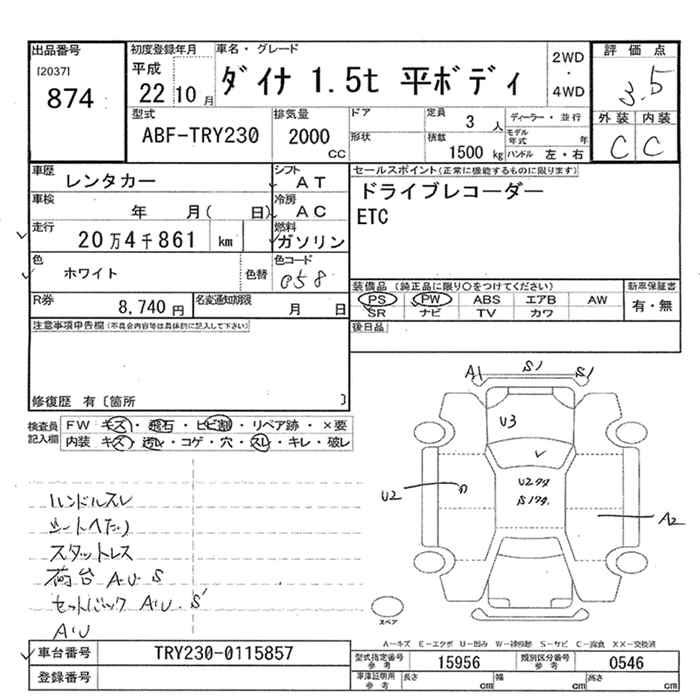 出品番号
[2037]
874
初度登録年月
平成
22 10 月
車名・グレード
ダイナ 1.5t 平ボディ
2WD
・
4WD
評価点
3.5
外装 内装
C C
型式
ABF-TRY230
排気量
2000
CC
ドア
形状
定員
3 人
積載
1500 kg
ディーラー・並行
モデル年式 年
ハンドル 左・右
車歴
レンタカー
シフト
AT
車検
年 月( 日)
冷房
AC
走行
20万4千861 km
燃料
ガソリン
色
ホワイト
色替
色コード
058
R券
8,740 円
名変通知期限
月 日
セールスポイント(正常に機能するものに限ります)
ドライブレコーダー
ETC
装備品 (純正品に限り○をつけてください)
PS PW ABS エアB AW
SR ナビ TV カワ
新車保証書
有・無
後日品
注意事項申告欄(不具合内容等は具体的に記入して下さい)
修復歴 有〔箇所 〕
検査員
記入欄
FW キズ・飛石・ヒビ割・リペア跡・×要
内装 キズ・汚レ・コゲ・穴・スレ・キレ・破レ
ハンドルスレ
シートヘたり
スタットレス
荷台 A.U S
セットバック A'U. S'
A'U
A1 S1 S1
U3
U2
U2タタ
S1タタ
A2
スペア
A-キズ E-エクボ U-凹み W-補修跡 S-サビ C-腐食 XX-交換済
車台番号
TRY230-0115857
登録番号
型式指定番号
参考
15956
類別区分番号
参考
0546
車庫証明用
参考
長さ cm
幅 cm
高さ cm